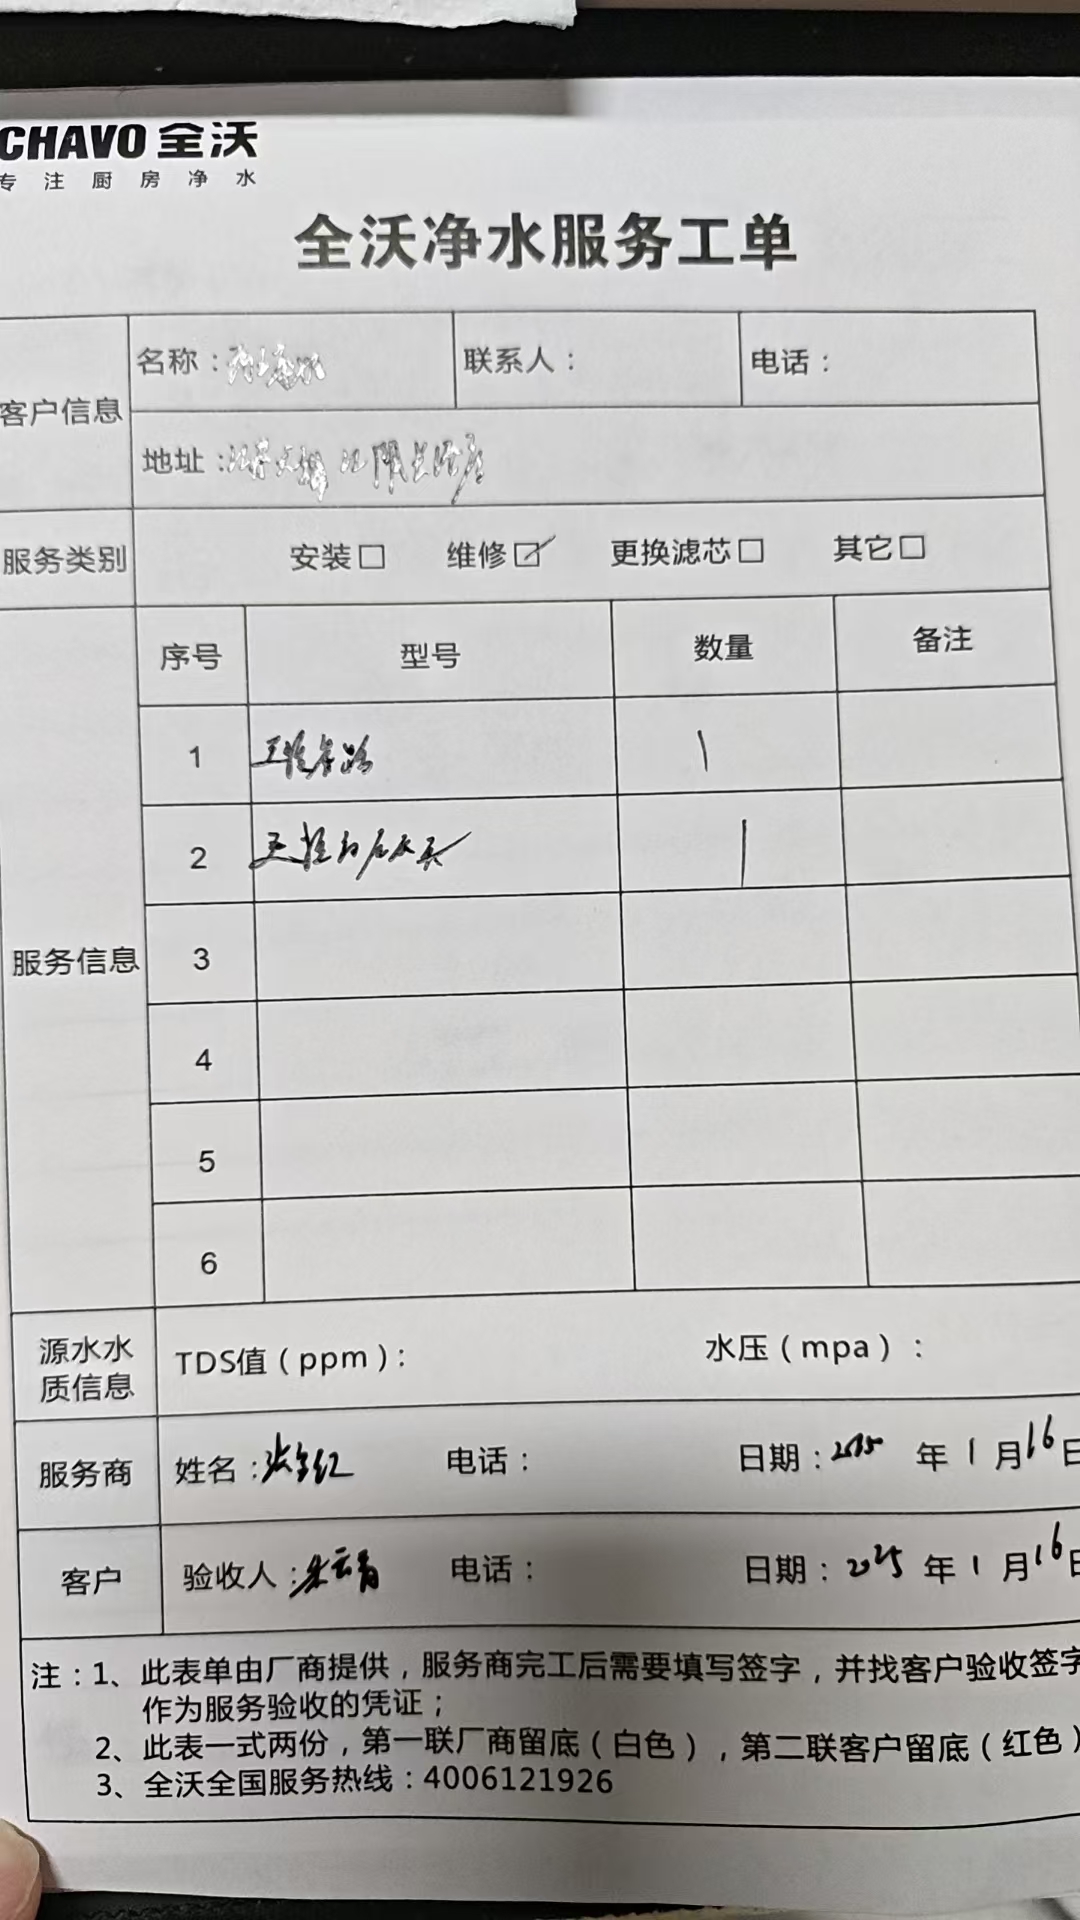 CHAVO 全沃
专注厨房净水
全沃净水服务工单
客户信息 名称： 联系人： 电话：
地址：
服务类别 安装□ 维修☑ 更换滤芯□ 其它□
服务信息 序号 型号 数量 备注
1 1
2 1
3
4
5
6
源水水质信息 TDS值（ppm）： 水压（mpa）：
服务商 姓名： 电话： 日期： 年 1 月 16 日
客户 验收人：朱云青 电话： 日期：2025 年 1 月 16 日
注：1、此表单由厂商提供，服务商完工后需要填写签字，并找客户验收签字
作为服务验收的凭证；
2、此表一式两份，第一联厂商留底（白色），第二联客户留底（红色）
3、全沃全国服务热线：4006121926